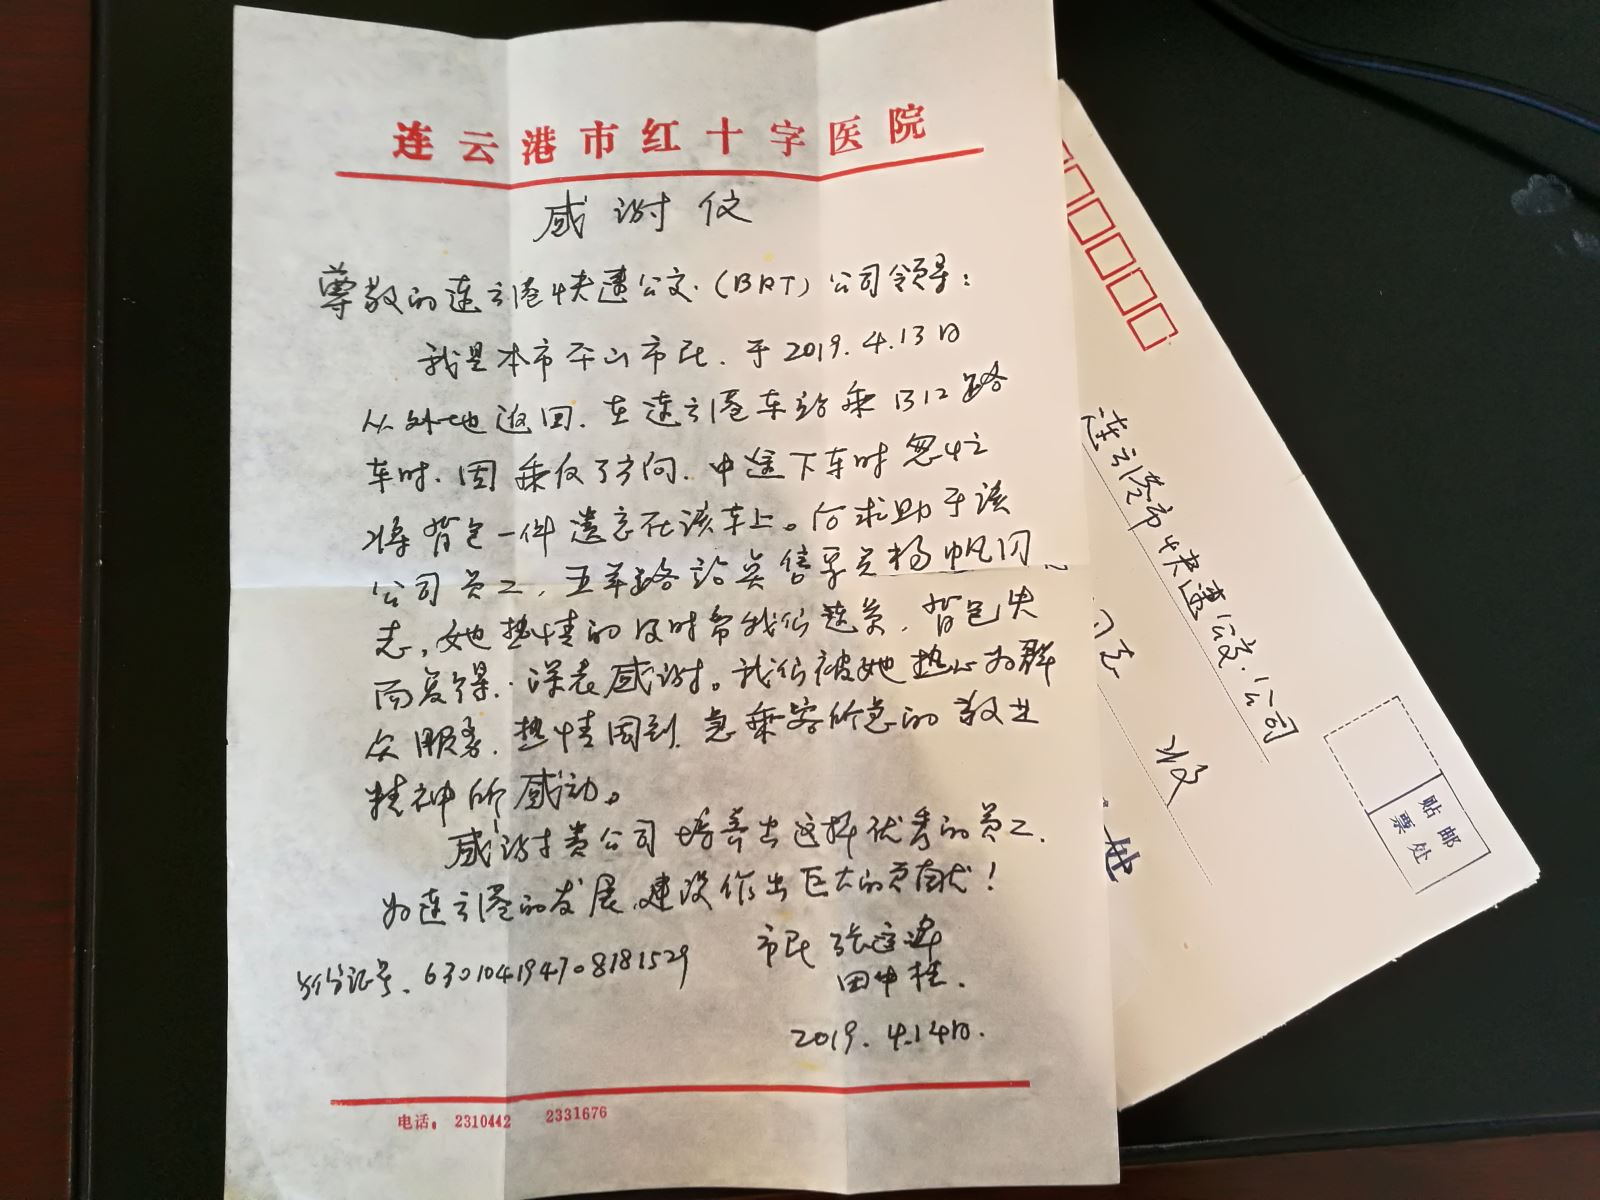 连云港市红十字医院
感谢信
尊敬的连云港快速公交.(BRT)公司领导:
我是本市平山市民.于2019.4.13日
从外地返回.在连云港车站乘B12路
车时.因乘反了方向.中途下车时匆忙
将背包一件遗忘在该车上。后求助于该
公司员工,五羊路站卖售票员杨帆同
志,她热情的及时帮我们联系.背包失
而复得.深表感谢。我们被她热心为群
众服务.热情周到.急乘客所急的敬业
精神所感动。
感谢贵公司培养出这样优秀的员工.
为连云港的发展.建设作出巨大的贡献!
市民 张
田中桂.
身份证号.630104194708181529
2019.4.14日.
电话:2310442 2331676
连云港市快速公交.公司
同志
收
贴邮
票处